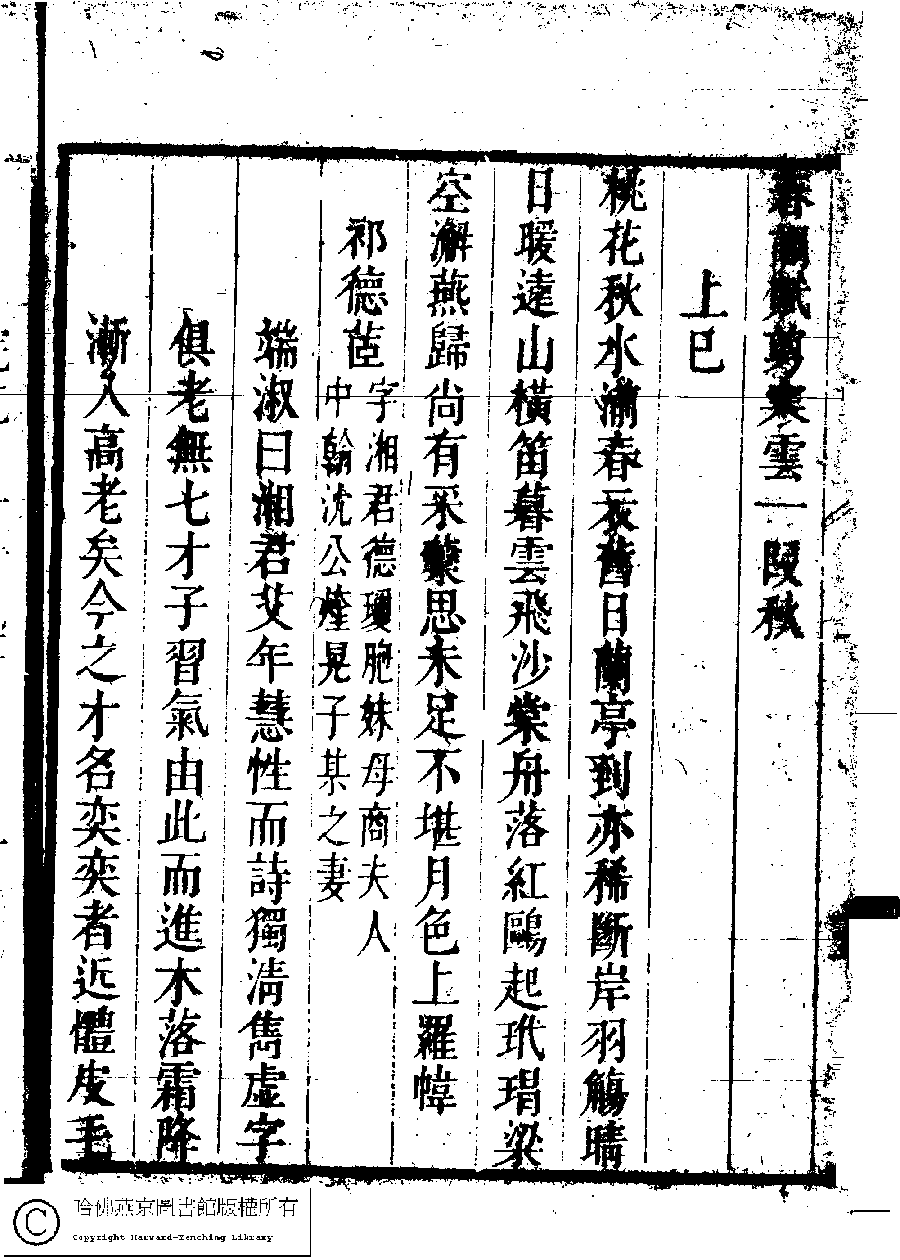 春閨賦剪寒雲一段秋
上巳
桃花秋水滿春衣舊日蘭亭到亦稀斷岸羽觴晴
日暖遠山橫笛暮雲飛沙棠舟落紅鷗起玳瑁梁
空澥燕歸尚有采蘩思未足不堪月色上羅幃
祁德茝
字湘君德瓊胞妹母商夫人
中翰沈公煃晃子某之妻
端淑曰湘君艾年慧性而詩獨淸雋虛字
俱老無七才子習氣由此而進木落霜降
漸入高老矣今之才名奕奕者近體皮毛
哈佛燕京圖書館版權所有
Copyright Harvard-Yenching Library